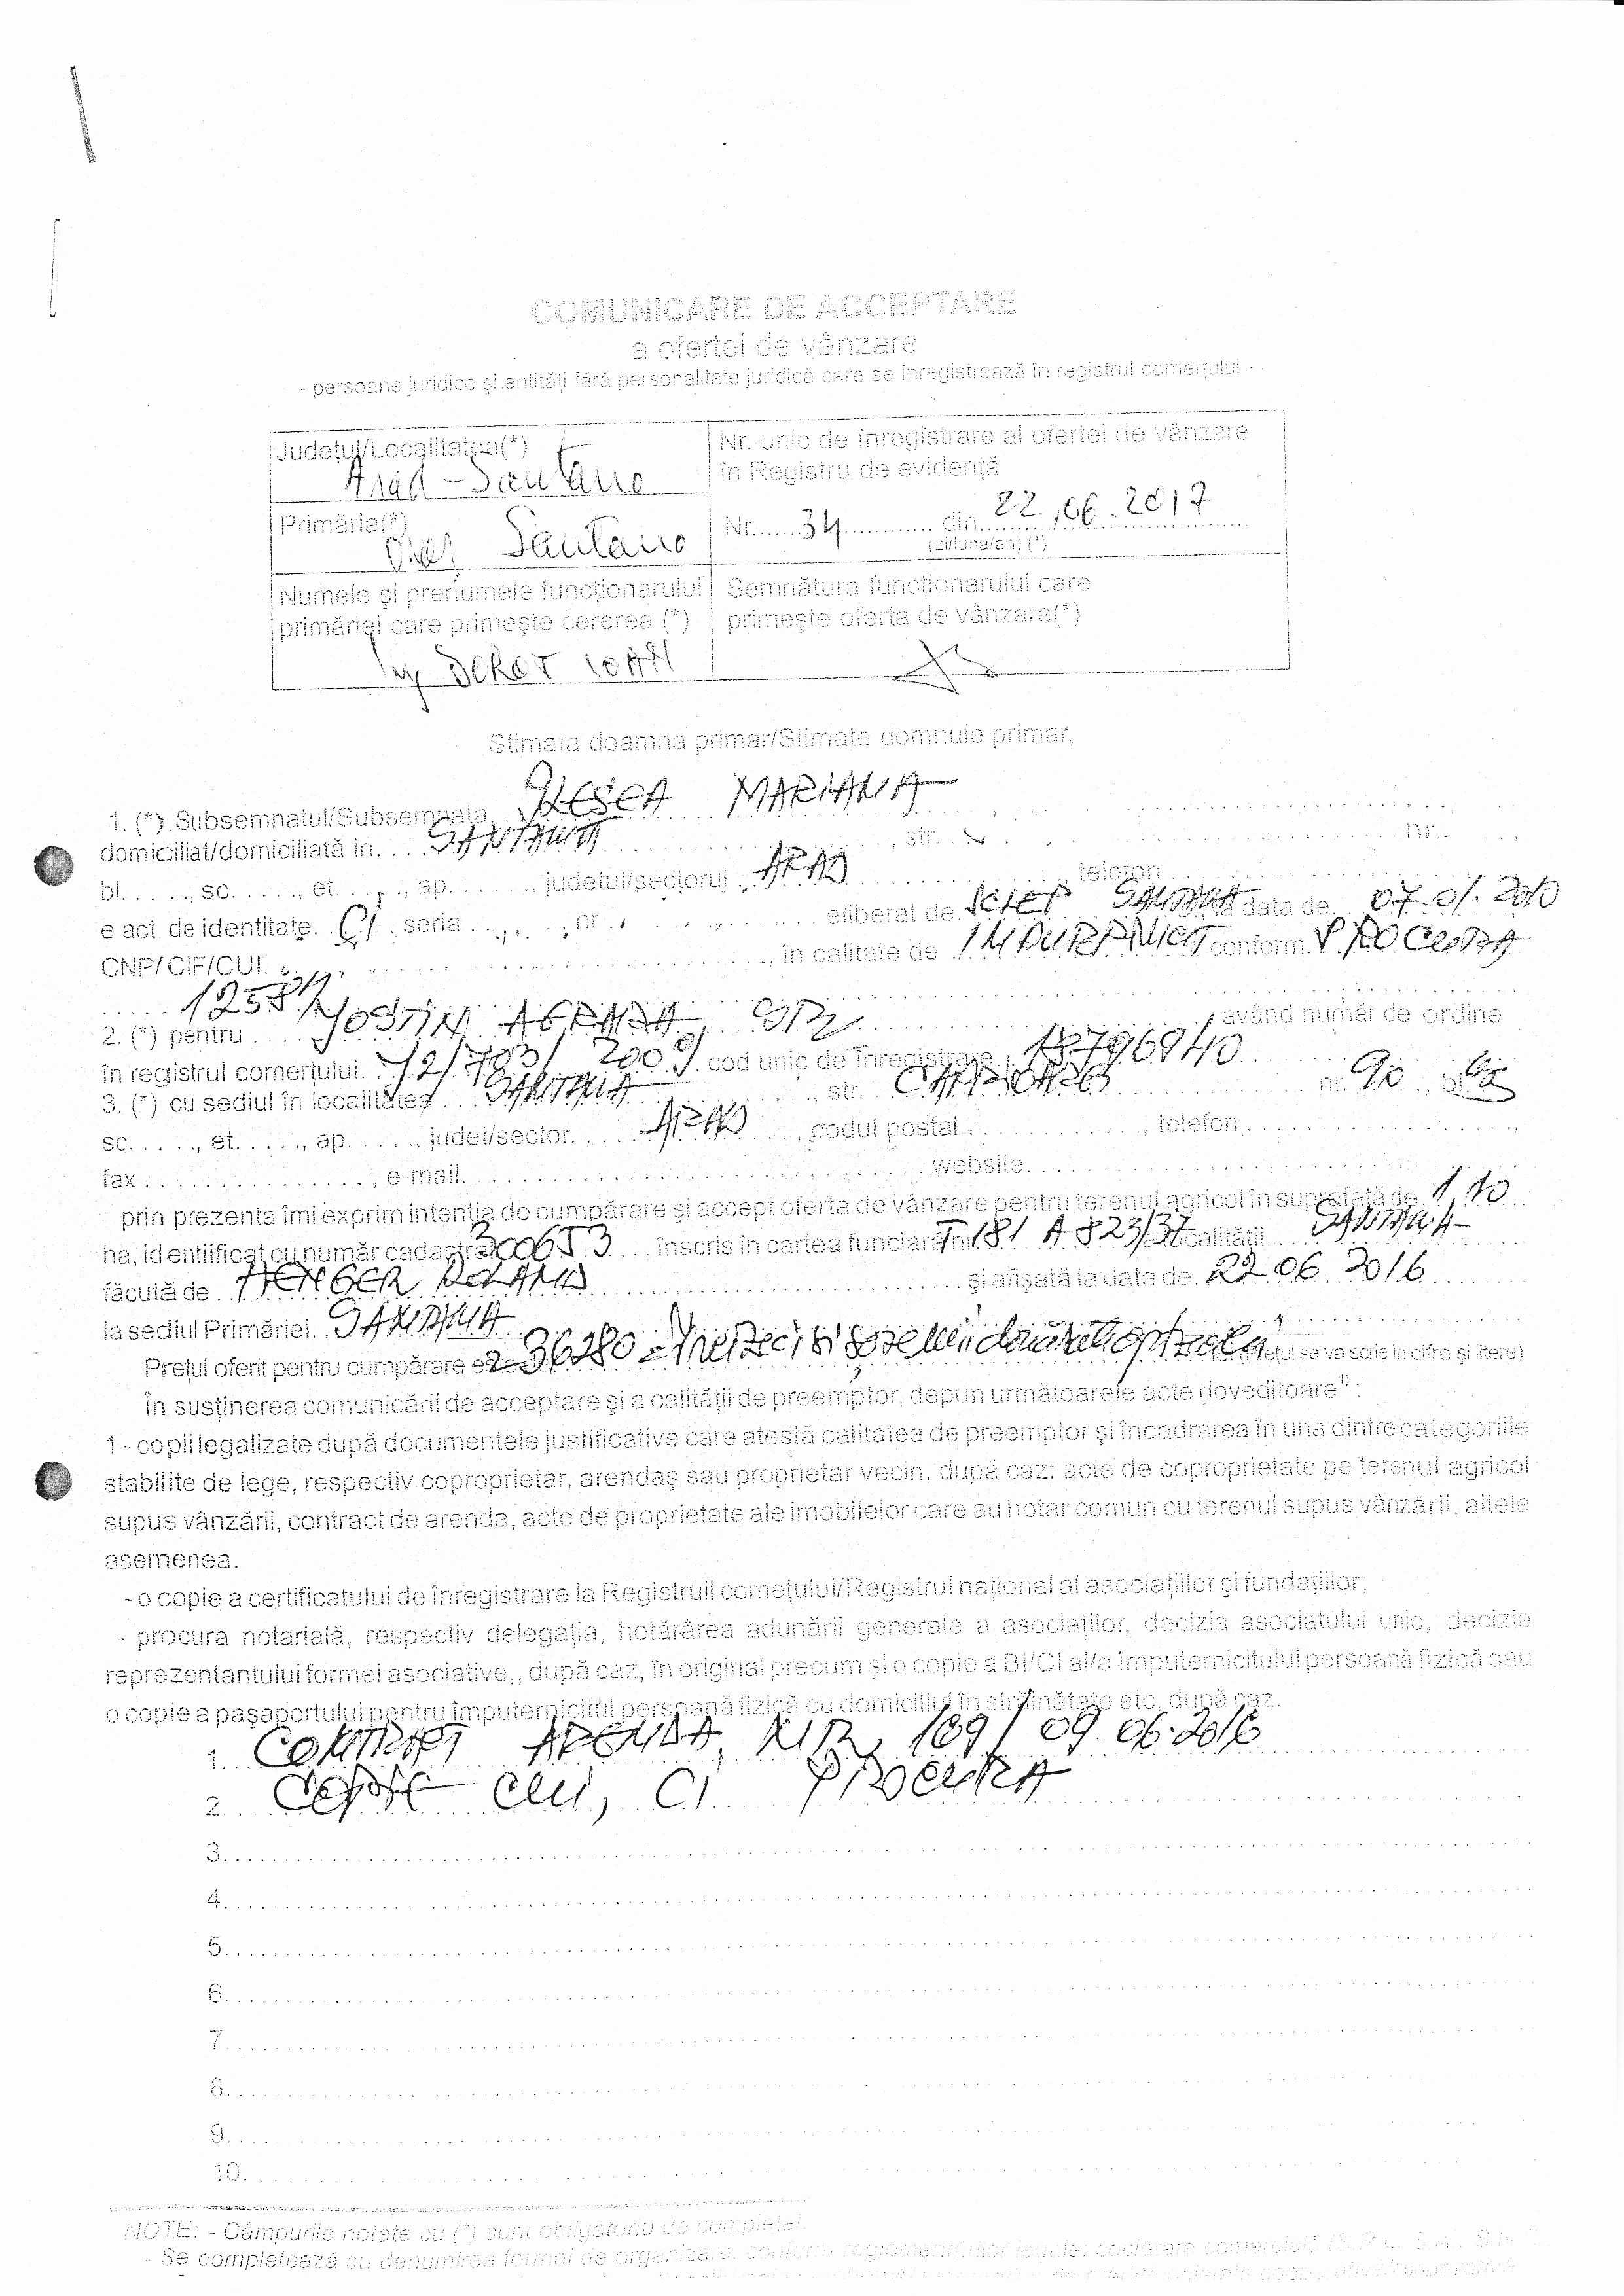 COMUNICARE DE ACCEPTARE
a ofertei de vânzare
- persoane juridice şi entităţi fără personalitate juridică care se înregistrează în registrul comerţului -
Judeţul/Localitatea(*)
Arad - Santana
Nr. unic de înregistrare al ofertei de vânzare
în Registru de evidenţă
Nr. 34 din 22.06.2017
(zi/luna/an) (*)
Primăria(*)
Santana
Numele şi prenumele funcţionarului
primăriei care primeşte cererea (*)
IOAN
Semnătura funcţionarului care
primeşte oferta de vânzare(*)
Stimata doamna primar/Stimate domnule primar,
1. (*) Subsemnatul/Subsemnata MARIANA
domiciliat/domiciliată în SANTANA, str. nr.
bl. , sc. , et. , ap. , judeţul/sectorul ARAD, telefon
e act de identitate CI seria , nr. eliberat de SCLEP SANTANA la data de 07.01.2010
CNP/CIF/CUI , în calitate de IMPUTERNICIT conform PROCURA
1258
2. (*) pentru SRL având număr de ordine
în registrul comerţului 2009 cod unic de înregistrare
3. (*) cu sediul în localitatea SANTANA, str. nr. 90, bl.
sc. , et. , ap. , judeţ/sector ARAD, codul postal , telefon
fax , e-mail website
prin prezenta îmi exprim intenţia de cumpărare şi accept oferta de vânzare pentru terenul agricol în suprafaţă de 1,10
ha, identiificat cu număr cadastral 300653 înscris în cartea funciară T 181 A 823/37 a localităţii SANTANA
făcută de HENGER ROLAND şi afişată la data de 22 06 2016
la sediul Primăriei SANTANA
Preţul oferit pentru cumpărare 36280 se va scrie în cifre şi litere)
În susţinerea comunicării de acceptare şi a calităţii de preemptor, depun următoarele acte doveditoare 1) :
1 - copii legalizate după documentele justificative care atestă calitatea de preemptor şi încadrarea în una dintre categoriile
stabilite de lege, respectiv coproprietar, arendaş sau proprietar vecin, după caz: acte de coproprietate pe terenul agricol
supus vânzării, contract de arenda, acte de proprietate ale imobilelor care au hotar comun cu terenul supus vânzării, altele
asemenea.
- o copie a certificatului de înregistrare la Registruil comeţului/Registrul naţional al asociaţiilor şi fundaţiilor;
- procura notarială, respectiv delegaţia, hotărârea adunării generale a asociaţilor, decizia asociatului unic, decizia
reprezentantului formei asociative,, după caz, în original precum şi o copie a BI/CI al/a împuternicitului persoană fizică sau
o copie a paşaportului pentru împuternicitul persoană fizică cu domiciliul în străinătate etc, după caz.
1. CONTRACT ARENDA NR. 109/09.06.2016
2. COPIE CUI, CI PROCURA
3.
4.
5.
6.
7.
8.
9.
10.
NOTE: - Câmpurile notate cu (*) sunt obligatoriu de completat.
- Se completează cu denumirea formei de organizare, conform reglementărilor legale: societate comercială